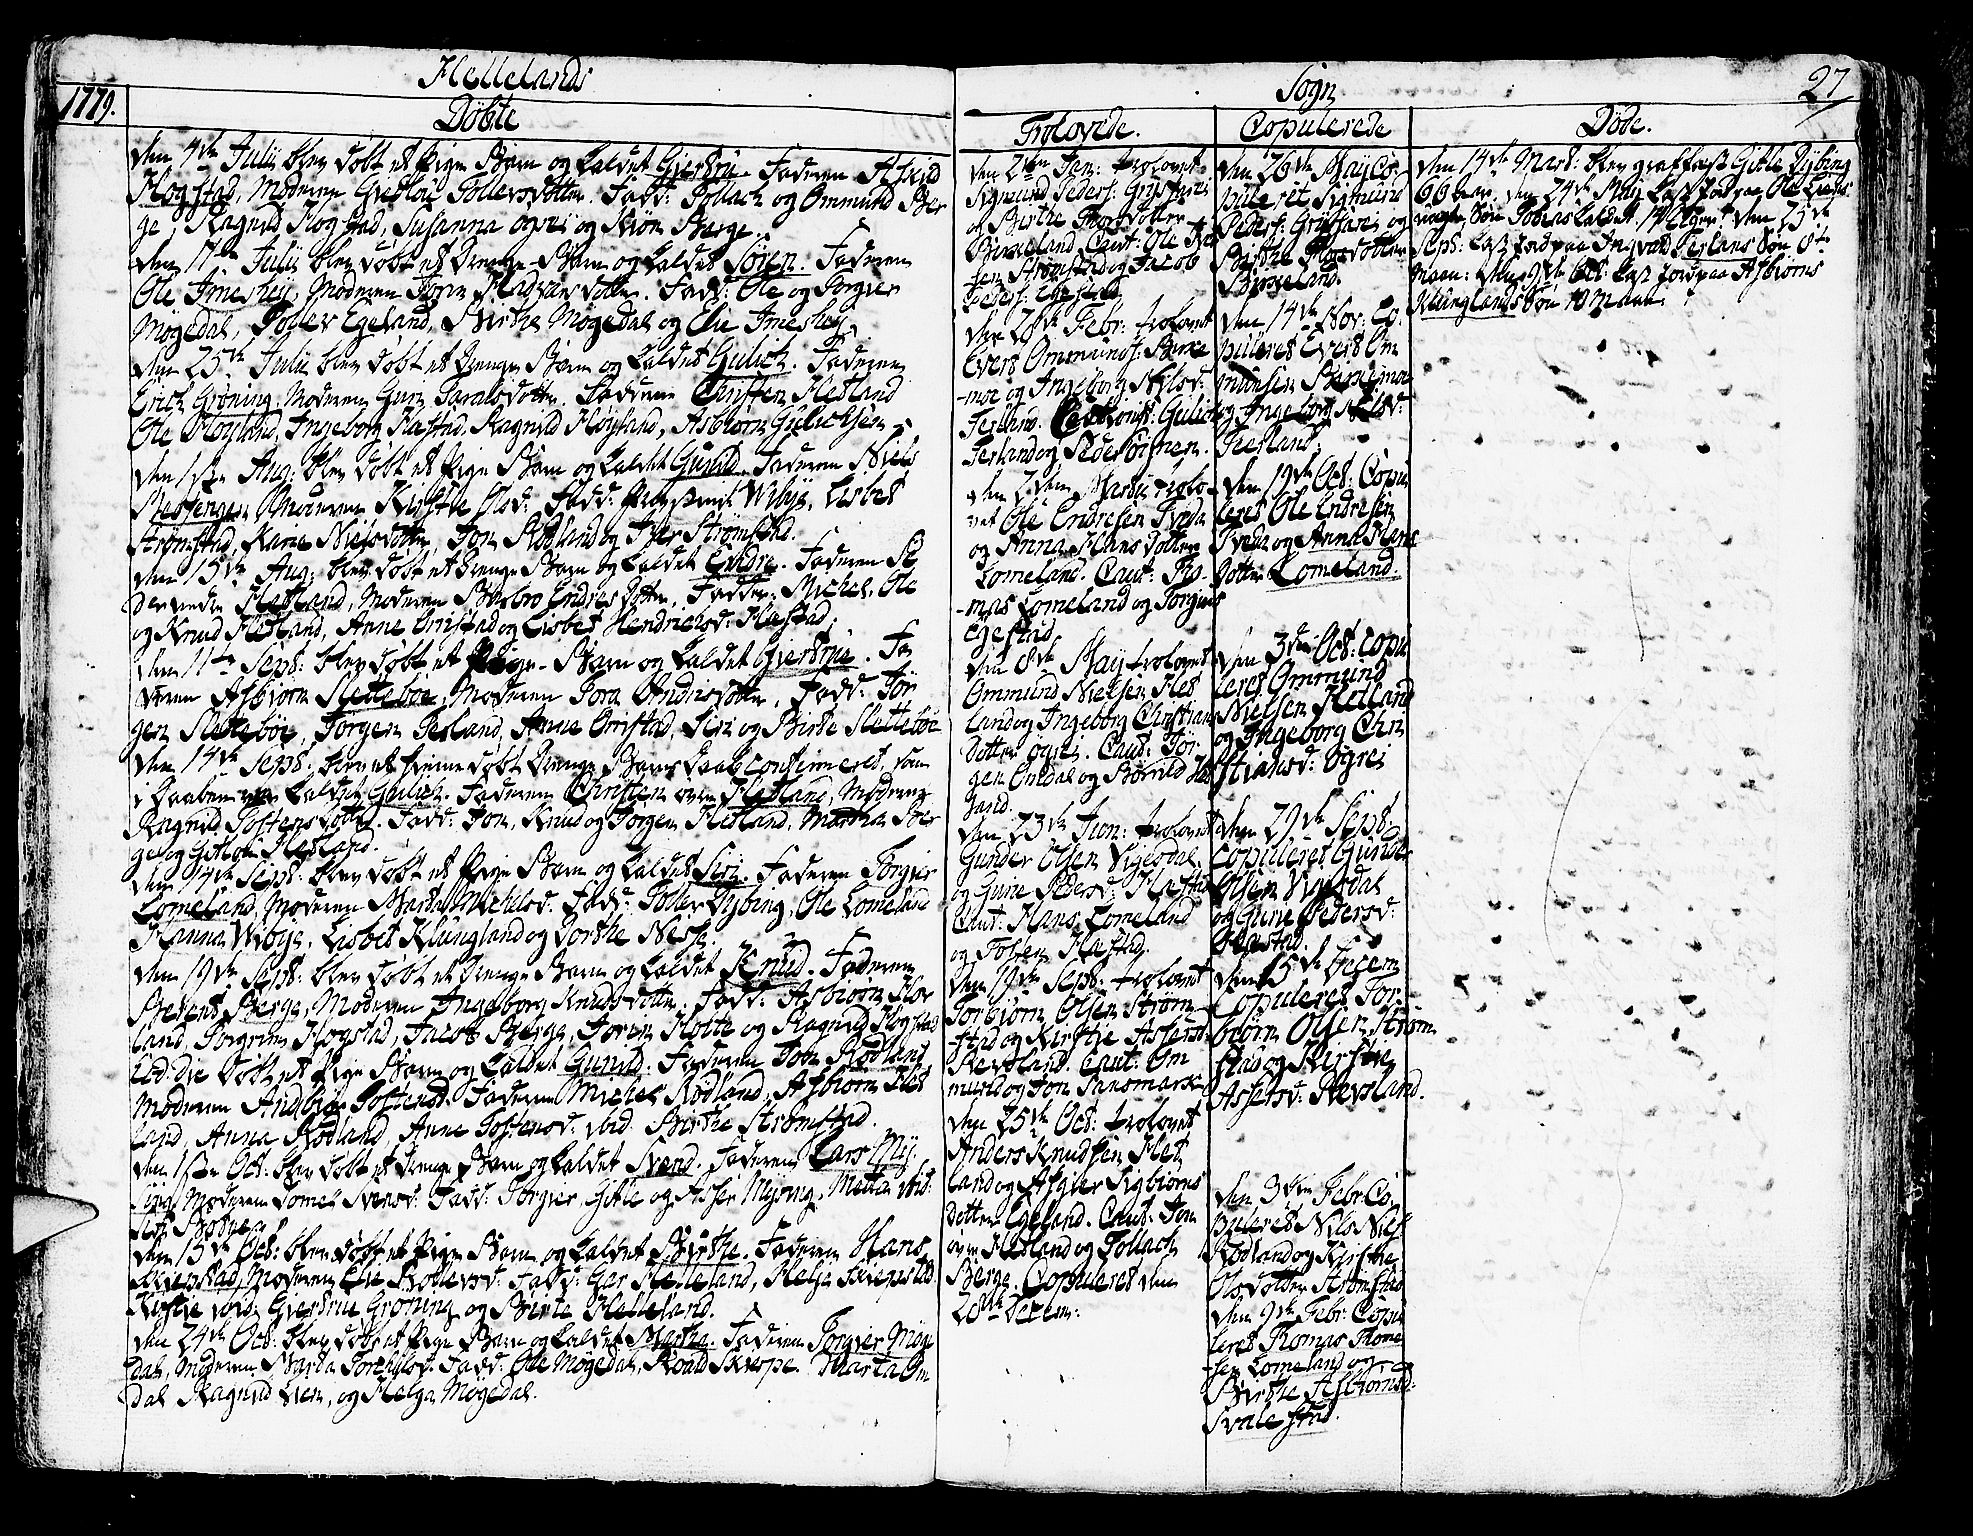 Hellelands
1779.
Döbte
den 4de Julii blev döbt et Pige Barn og kaldet Giertrü. Faderen Asluld
Hogstad, Moderen Gretlou Tollevsdotter. Fadd: Tollach og Ommund Ber
ge, Ragnild Hogstad, Susanna ogrei og Siön Berge.
den 17de Julii blev döbt et Drenge Barn og kaldet Sören. Faderen
Ole Imeshey, Moderen Jorn Hadvarsdotter. Fadd: Ole og Torgier
Mögedal, Tollev Egeland, Birthe Mögedal og Elie Imeshey.
den 25de Julii blev döbt et Drenge Barn og kaldet Gulich. Faderen
Erich Gröning, Moderen Guri. Fadderne Christen Hetland
Ole Höyland, Ingeborg Hastad, Ragnild Höyland, Asbiörn Gulichsen.
den 1ste Aug: blev döbt et Pige Barn og kaldet Gunild. Faderen Niels
Moderen Kirstie Olsd: Fadd: Wibye, Lisbet
Strömstad, Karie Nielsdotter, Jon Rödland og Iver Strömstad.
den 15de Aug: blev döbt et Drenge Barn og kaldet Endre. Faderen Pe
der Hetland, Moderen Barbro Endresdotter, Fadder: Michel, Ole
og Knud Hetland, Anne Orrestad og Lisbet Hendrichsd: Hastad.
den 11te Sept: blev döbt et Pige Barn og kaldet Giertrue. Fa
deren Asbiörn Sletteböe, Moderen Tora Ondrisdotter, Fadd: Jör
gen Sletteböe, Torgier Terland, Anna Orrestad, Siri og Birte Sletteböe
den 14de Sept: blev et hiemme döbt Drenge Barns Daab confirmeret, som
i Daaben var kaldet Gulich. Faderen Christen oven Hetland, Moderen
Ragnild Tostensdotter. Fadd: Jon, Knud og Torgier Hetland, Martha Ber
ge og Hetland.
den 14de Sept: blev döbt et Pige Barn og kaldet Siri. Faderen Torgier
Lomeland, Moderen Marta Michelsd: Fadd: Tollev Dybing, Ole Lomeland
Hanna Wibye, Lisbet Klungland og Dorthe Nesse.
den 19de Sept: blev döbt et Drenge Barn og kaldet Knud. Faderen
Berent Berge, Moderen Ingeborg Knudsdotter. Fadd: Asbiörn Hov
land, Torgrim Hogstad, Jacob Berge, Jorun Holte og Ragnild Hogstad
Eod: die döbt et Pige Barn og kaldet Gunild. Faderen Jon Rödland
Moderen Andbiör Tostensd: Fadderne Michel Rödland, Asbiörn Het
land, Anna Rödland, Anne Tostensd: ibid. Birthe Strömstad.
den 1ste Oct: blev döbt et Drenge Barn og kaldet Svend. Faderen Lars My
sing, Moderen Svensd: Fadd: Torgier, Gitle og Asser Mysing, Metta ibid:
Siri
den 15de Oct: blev döbt et Pige Barn og kaldet Birthe. Faderen Hans
Skrepstad, Moderen Elie Rollevsd: Fadd: Ger Helleland, Helje Skrepstad
Kirstie ibid: Giertrue Gröning og Birte Helleland.
den 24de Oct: blev döbt et Pige Barn og kaldet Martha. Faderen Torgier Möge
dal, Moderen Marta Torchilsd: Fadd: Ole Mögedal, Roald Skierpe. Marta Om
dal Ragnild Lien, og Helga Mögedal.
Sogn
27
Trolovede.
den 2den Jan: trolovet
Sigmund Peders: Grysteri
og Birthe Thorsdotter
Birkeland. Caut: Ole Ne
sen Strömstad og Jacob
Peders: Egestad
den 28de Febr: trolovet
Evert Ommunds: Birke
moe og Ingeborg Nilsd:
Terland. Caut: Gulich
Terland og Peder
den 2den Martii trolo
vet Ole Endresen Tveda
og Anna Hansdotter
Lomeland. Caut: Tho
mas Lomeland og Torgius
Egestad
den 8de May trolovet
Ommund Nielsen Het
land og Ingeborg Christians
dotter ogrei. Caut: Jör
gen Omdal og Het
land.
den 23de Jun: trolovet
Gunder Olsen Vigesdal
og Guri Pedersd: Hastad
Caut: Hans Lomeland
og Tosten Hastad.
den 19de Sept: trolovet
Torbiörn Olsen Ström
stad og Kirstie Assersd:
Revsland. Caut: Om
mund og Jon Sansmark
den 25de Oct: trolovet
Anders Knudsen Het
land og Asgier Sigbiörns
dotter Egeland. Caut: Jon
oven Hetland og Tollach
Berge. Copuleret den
28de Decem:
Copulerede
den 26de May co
puleret Sigmund
Peders: Grysteri og
Birthe Thorsdotter
Birkeland.
den 14de Nov: co
puleret Evert Om
mundsen Birkemoe
og Ingeborg Nilsd:
Terland.
den 19de Oct: Copu
leret Ole Endresen
Tveda og Anna Hans
dotter Lomeland.
den 3die Oct: Copu
leret Ommund
Nielsen Hetland
og Ingeborg Chri
stiansd: Ogrei
den 29de Sept:
copuleret Gunder
Olsen Vigesdal
og Gurie Pedersd:
Hastad.
den 15de Decem
Copuleret Tor
biörn Olsen Ström
stad og Kirstie
Assersd: Revsland.
den 3die Febr: Co
puleret Nils Niels:
Rödland og Kirstie
Olsdotter Strömstad
den 9de Febr: Copu
leret Thomas Thome
sen Lomeland og
Birthe Asbiörnsd:
Svalestad.
Döde.
den 14de Mart: blev graffæst Gitle Dybing
66 aar. den 24de May kast Jord paa Ole Lands
Sön Tobias kaldet. den 25de
Sept: kast Jord paa Ingvald Terlans Sön 8te
Maan: den 9de Oct: kast Jord paa Asbiörns
Klunglands Sön 10 Maan.